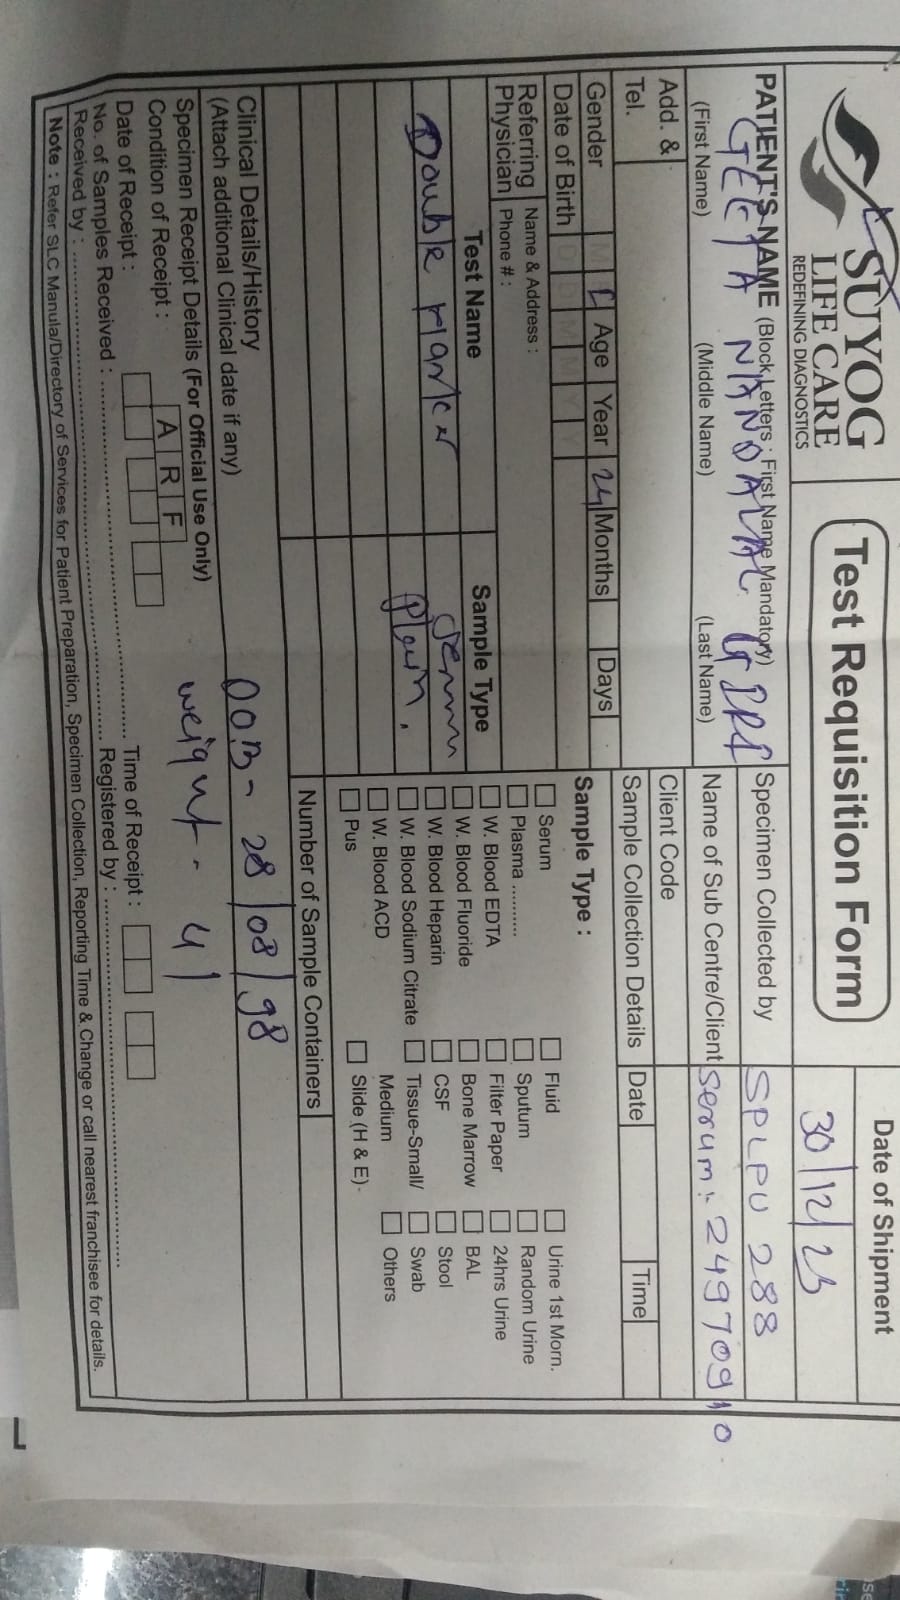 SUYOG
LIFE CARE
REDEFINING DIAGNOSTICS
Test Requisition Form
Date of Shipment
30/12/23
PATIENT'S NAME (Block Letters : First Name Mandatory)
GEETA
(First Name) (Middle Name) (Last Name)
Specimen Collected by SPLPU 288
Name of Sub Centre/Client Serum: 24970910
Add. &
Tel.
Client Code
Sample Collection Details Date Time
Gender M F Age Year 24 Months Days
Date of Birth D D M M Y Y
Referring Physician
Name & Address :
Phone # :
Test Name Sample Type
Double Marker Serum
Plain.
Sample Type :
Serum Fluid Urine 1st Morn.
Plasma .......... Sputum Random Urine
W. Blood EDTA Filter Paper 24hrs Urine
W. Blood Fluoride Bone Marrow BAL
W. Blood Heparin CSF Stool
W. Blood Sodium Citrate Tissue-Small/ Swab
W. Blood ACD Medium Others
Pus Slide (H & E)
Number of Sample Containers
Clinical Details/History
(Attach additional Clinical date if any)
DOB - 28/08/98
weight - 41
Specimen Receipt Details (For Official Use Only)
Condition of Receipt : A R F
Date of Receipt : Time of Receipt :
No. of Samples Received : Registered by :
Received by :
Note : Refer SLC Manula/Directory of Services for Patient Preparation, Specimen Collection, Reporting Time & Change or call nearest franchisee for details.